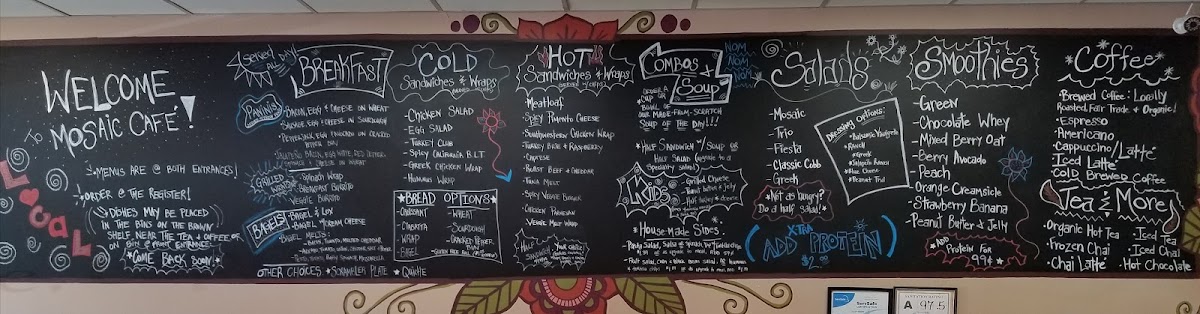 WELCOME
TO
MOSAIC CAFÉ!
MENUS ARE @ BOTH ENTRANCES!
ORDER @ THE REGISTER!
DISHES MAY BE PLACED
IN THE BINS ON THE BROWN
SHELF NEAR THE TEA & COFFEE OR
ON BIN @ FRONT ENTRANCE
COME BACK SOON!
Local
Served
ALL DAY
BREAKFAST
PANINIS
BACON, EGG & CHEESE ON WHEAT
SAUSAGE EGG & CHEESE ON SOURDOUGH
GRILLED WRAPS
SPINACH WRAP
BREAKFAST BURRITO
VEGGIE BURRITO
BAGELS
BAGEL & LOX
BAGEL & CREAM CHEESE
BAGEL MELTS:
OTHER CHOICES: SCRAMBLER PLATE QUICHE
COLD
Sandwiches & Wraps
- CHICKEN SALAD
- EGG SALAD
- TURKEY CLUB
- SPICY CALIFORNIA B.L.T
- GREEK CHICKEN WRAP
- HUMMUS WRAP
BREAD OPTIONS
- CROISSANT
- WHEAT
- CIABATTA
- SOURDOUGH
- WRAP
- CRACKED PEPPER
- BAGEL
HOT
Sandwiches & Wraps
- Meatloaf
- Spicy Pimento Cheese
- Southwestern Chicken Wrap
- Turkey Brie & Raspberry
- Caprese
- Roast Beef & Cheddar
- Tuna Melt
- Spicy Veggie Burger
- Chicken Parmesan
- Veggie Melt Wrap
HALF
SANDWICH
COMBOS
& Soup
ORDER A
CUP OR
BOWL OF
OUR MADE-FROM-SCRATCH
SOUP OF THE DAY!!!
HALF SANDWICH w/ SOUP OR
HALF SALAD
Kids
Grilled Cheese
Peanut Butter & Jelly
HOUSE MADE SIDES:
NOM
NOM
NOM
NOM
Salads
- Mosaic
- Trio
- Fiesta
- Classic Cobb
- Greek
DRESSING OPTIONS:
Balsamic Vinaigrette
Ranch
Greek
Jalapeño Ranch
Blue Cheese
Peanut Thai
Not as hungry?
Do a half salad!
XTRA
ADD PROTEIN
$2.00
Smoothies
- Green
- Chocolate Whey
- Mixed Berry Oat
- Berry Avocado
- Peach
- Orange Creamsicle
- Strawberry Banana
- Peanut Butter & Jelly
ADD
PROTEIN FOR
99¢
Coffee
Brewed Coffee: Locally
Roasted, Fair Trade & Organic!
Espresso
Americano
Cappuccino/Latté
Iced Latté
Cold Brewed Coffee
Tea & More
Organic Hot Tea
Iced Tea
Frozen Chai
Iced Chai
Chai Latté
Hot Chocolate
A 97.5